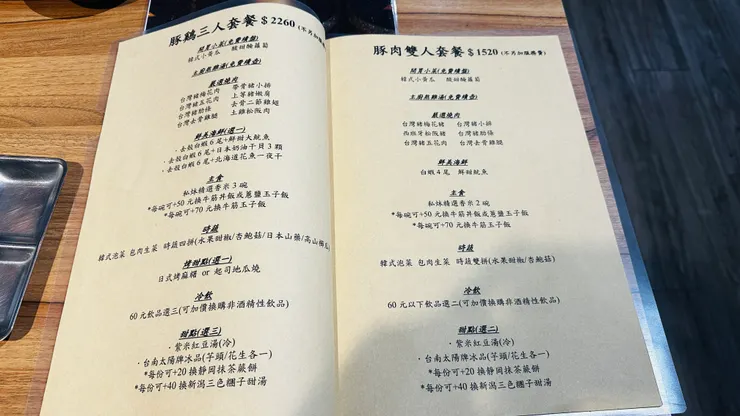 豚鷄三人套餐 $2260 (不另加服
開胃小菜(免費續盤)
韓式小黃瓜 酸甜醃蘿蔔
主廚熬雞湯(免費續壺)
嚴選燒肉
台灣豬梅花肉 帶骨豬小排
台灣豬五花肉 上等豬嫩肩
台灣豬肋條 去骨二節雞翅
台灣去骨雞腿 土雞松阪肉
鮮美海鮮(選一)
·去殼白蝦6尾+鮮甜大魷魚
·去殼白蝦6尾+日本奶油干貝3顆
·去殼白蝦6尾+北海道花魚一夜干
主食
私姝精選香米 3碗
*每碗可+50元換牛筋丼飯或蔥鹽玉子飯
*每碗可+70元換牛筋玉子飯
時蔬
韓式泡菜 包肉生菜 時蔬四拼(水果甜椒/杏鮑菇/日本山藥/高山
烤甜點(選一)
日式烤麻糬 or 起司地瓜燒
冷飲
60元飲品選三(可加價換購非酒精性飲品)
甜點(選三)
·紫米紅豆湯(冷)
·台南太陽牌冰品(芋頭/花生各一)
*每份可+20 換靜岡抹茶蕨餅
*每份可+40 換新潟三色糰子甜湯
豚肉雙人套餐 $1520 (不另加服務費)
開胃小菜(免費續盤)
韓式小黃瓜 酸甜醃蘿蔔
主廚熬雞湯(免費續壺)
嚴選燒肉
台灣豬梅花豬 台灣豬小排
西班牙松阪豬 台灣豬肋條
台灣豬五花肉 台灣去骨雞腿
鮮美海鮮
白蝦4尾 鮮甜魷魚
主食
私姝精選香米 2碗
*每碗可+50元換牛筋丼飯或蔥鹽玉子飯
*每碗可+70元換牛筋玉子飯
時蔬
韓式泡菜 包肉生菜 時蔬雙拼(水果甜椒/杏鮑菇)
冷飲
60元以下飲品選二(可加價換購非酒精性飲品)
甜點(選二)
·紫米紅豆湯(冷)
·台南太陽牌冰品(芋頭/花生各一)
*每份可+20 換靜岡抹茶蕨餅
*每份可+40 換新潟三色糰子甜湯